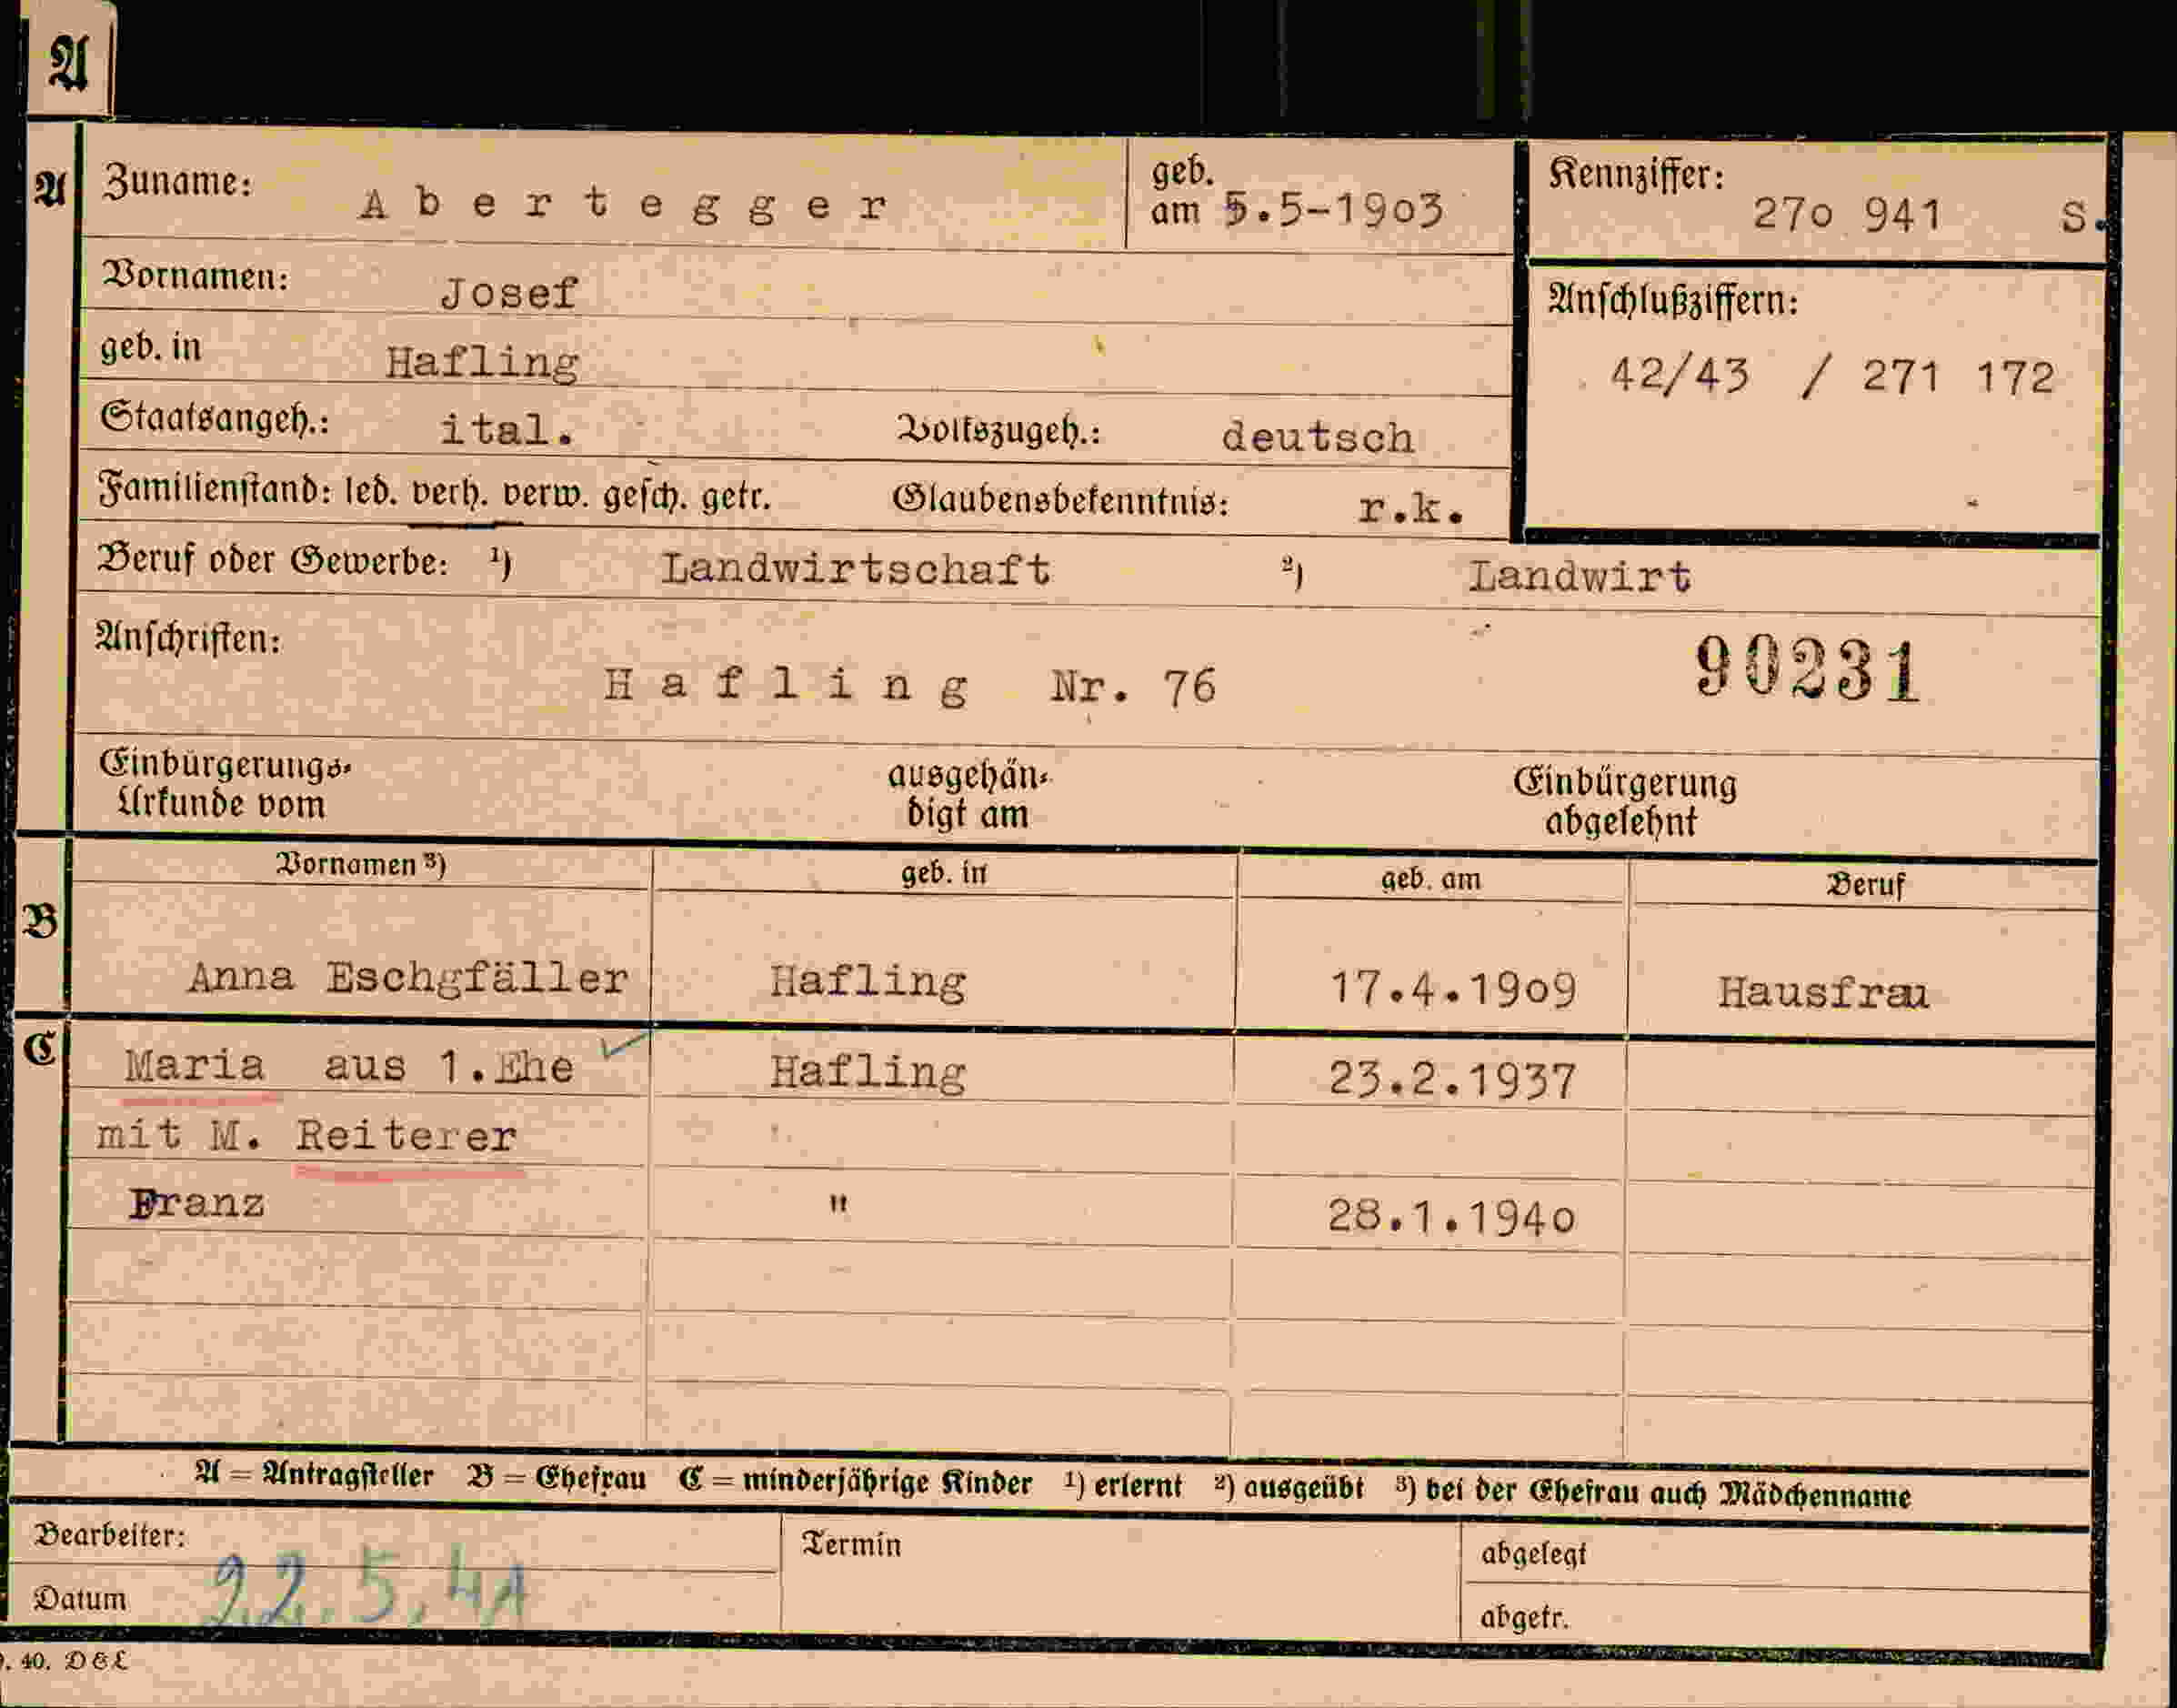 A
A Zuname: Abertegger geb. am 5.5-1903 Kennziffer: 270 941 S.
Vornamen: Josef
Anschlußziffern:
geb. in Hafling 42/43 / 271 172
Staatsangeh.: ital. Volkszugeh.: deutsch
Familienstand: led. verh. verw. gesch. getr. Glaubensbekenntnis: r.k.
Beruf oder Gewerbe: 1) Landwirtschaft 2) Landwirt
Anschriften: 90231
Hafling Nr. 76
Einbürgerungs- ausgehän- Einbürgerung
Urkunde vom digt am abgelehnt
Vornamen 3) geb. in geb. am Beruf
B
Anna Eschgfäller Hafling 17.4.1909 Hausfrau
C Maria aus 1.Ehe Hafling 23.2.1937
mit M. Reiterer
Franz " 28.1.1940
A = Antragsteller B = Ehefrau C = minderjährige Kinder 1) erlernt 2) ausgeübt 3) bei der Ehefrau auch Mädchenname
Bearbeiter: Termin abgelegt
Datum 22.5.41 abgetr.
. 40. D & L